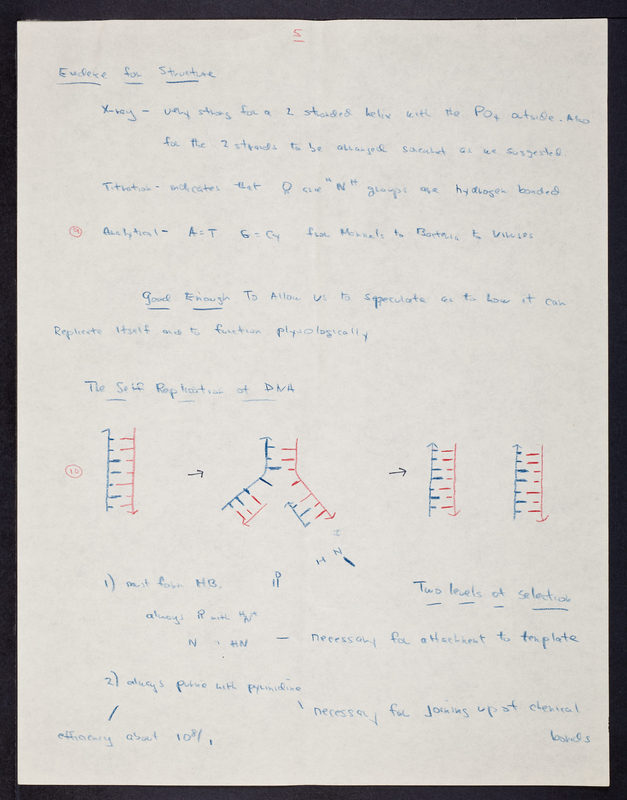 5
Evidence for Structure
X-ray – very strong for a 2 stranded helix with the PO4 outside. Also
for the 2 strands to be arranged somewhat as we suggested.
Titration – indicates that and "N" groups are hydrogen bonded
9 Analytical – A=T G=Cy from Mammals to Bacteria to Viruses
Good Enough To Allow us to speculate as to how it can
Replicate Itself and to function physiologically
The Self Replication of DNA
10
H N
1) must form HB.
Two levels of selection
always with
N HN – necessary for attachment to template
2) always purine with pyrimidine
necessary for Joining up of chemical
efficiency about bonds